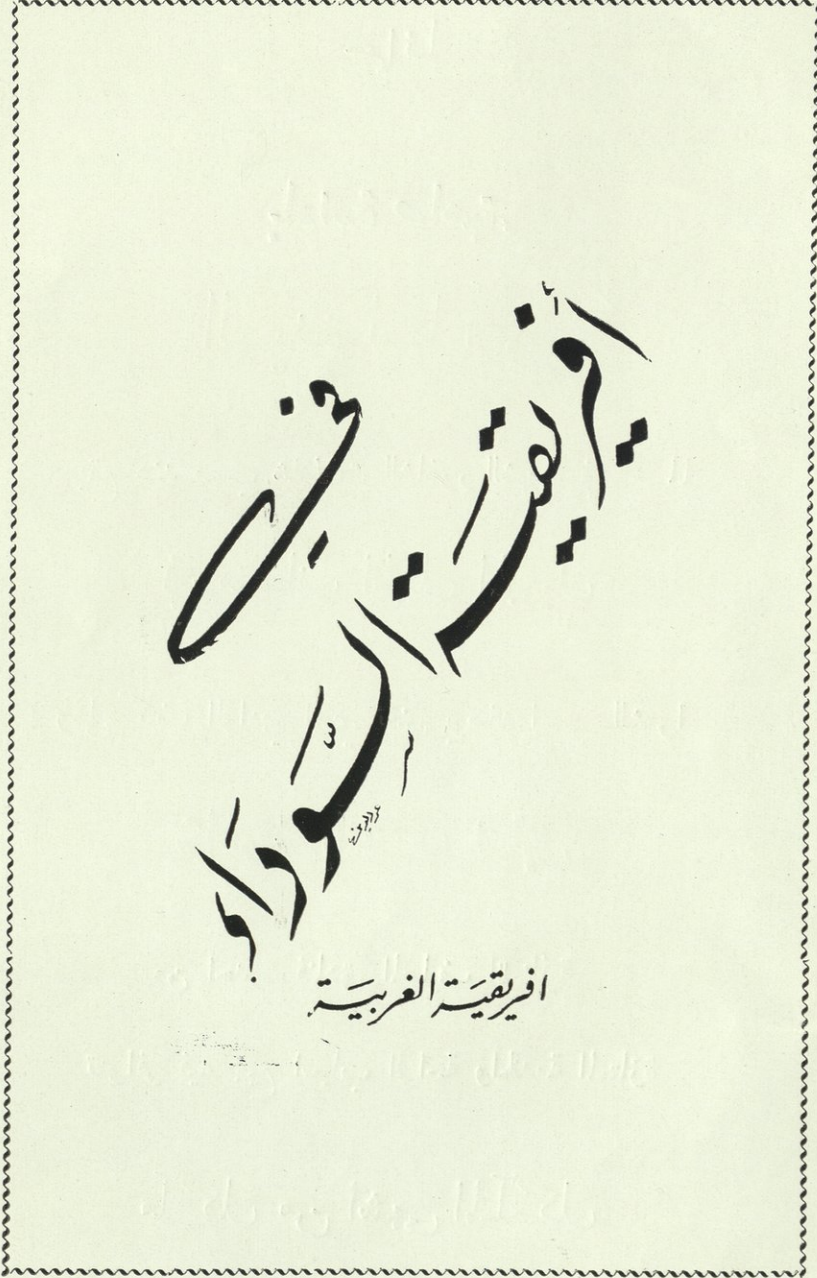 في
أفريقية السَّوداء
افريقيَة الغربيَة